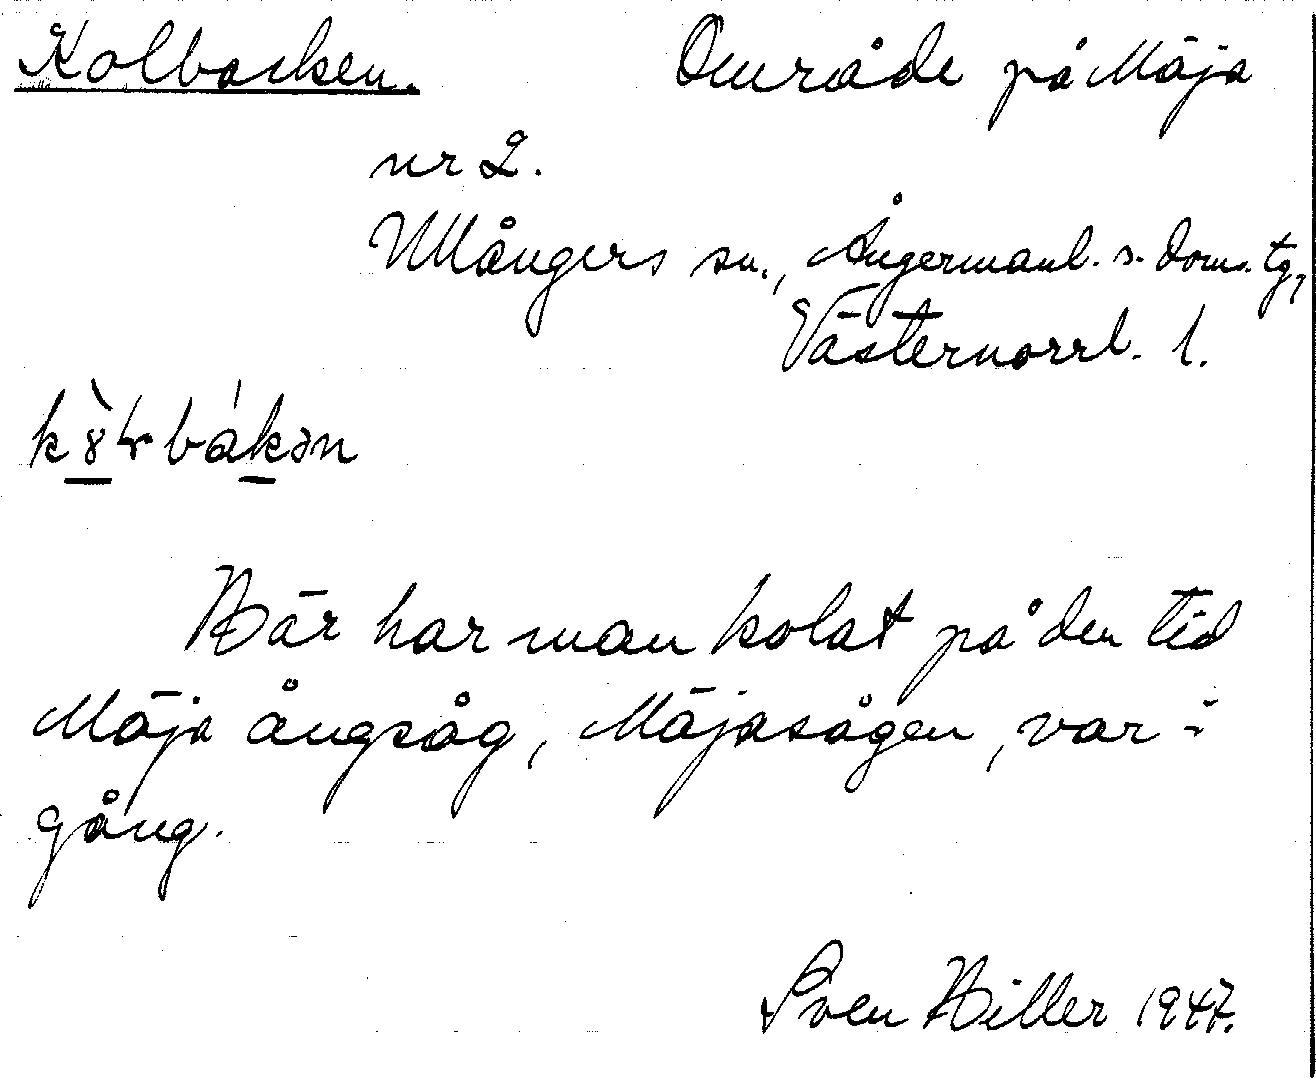 Kolbacken. Område på Mäja
nr 2.
Ullångers sn., Ångermanl. s. doms. tg,
Västernorrl. l.
Här har man kolat på den tid
Mäja ångsåg, Mäjasågen, var i
gång.
Sven Hiller 1947.